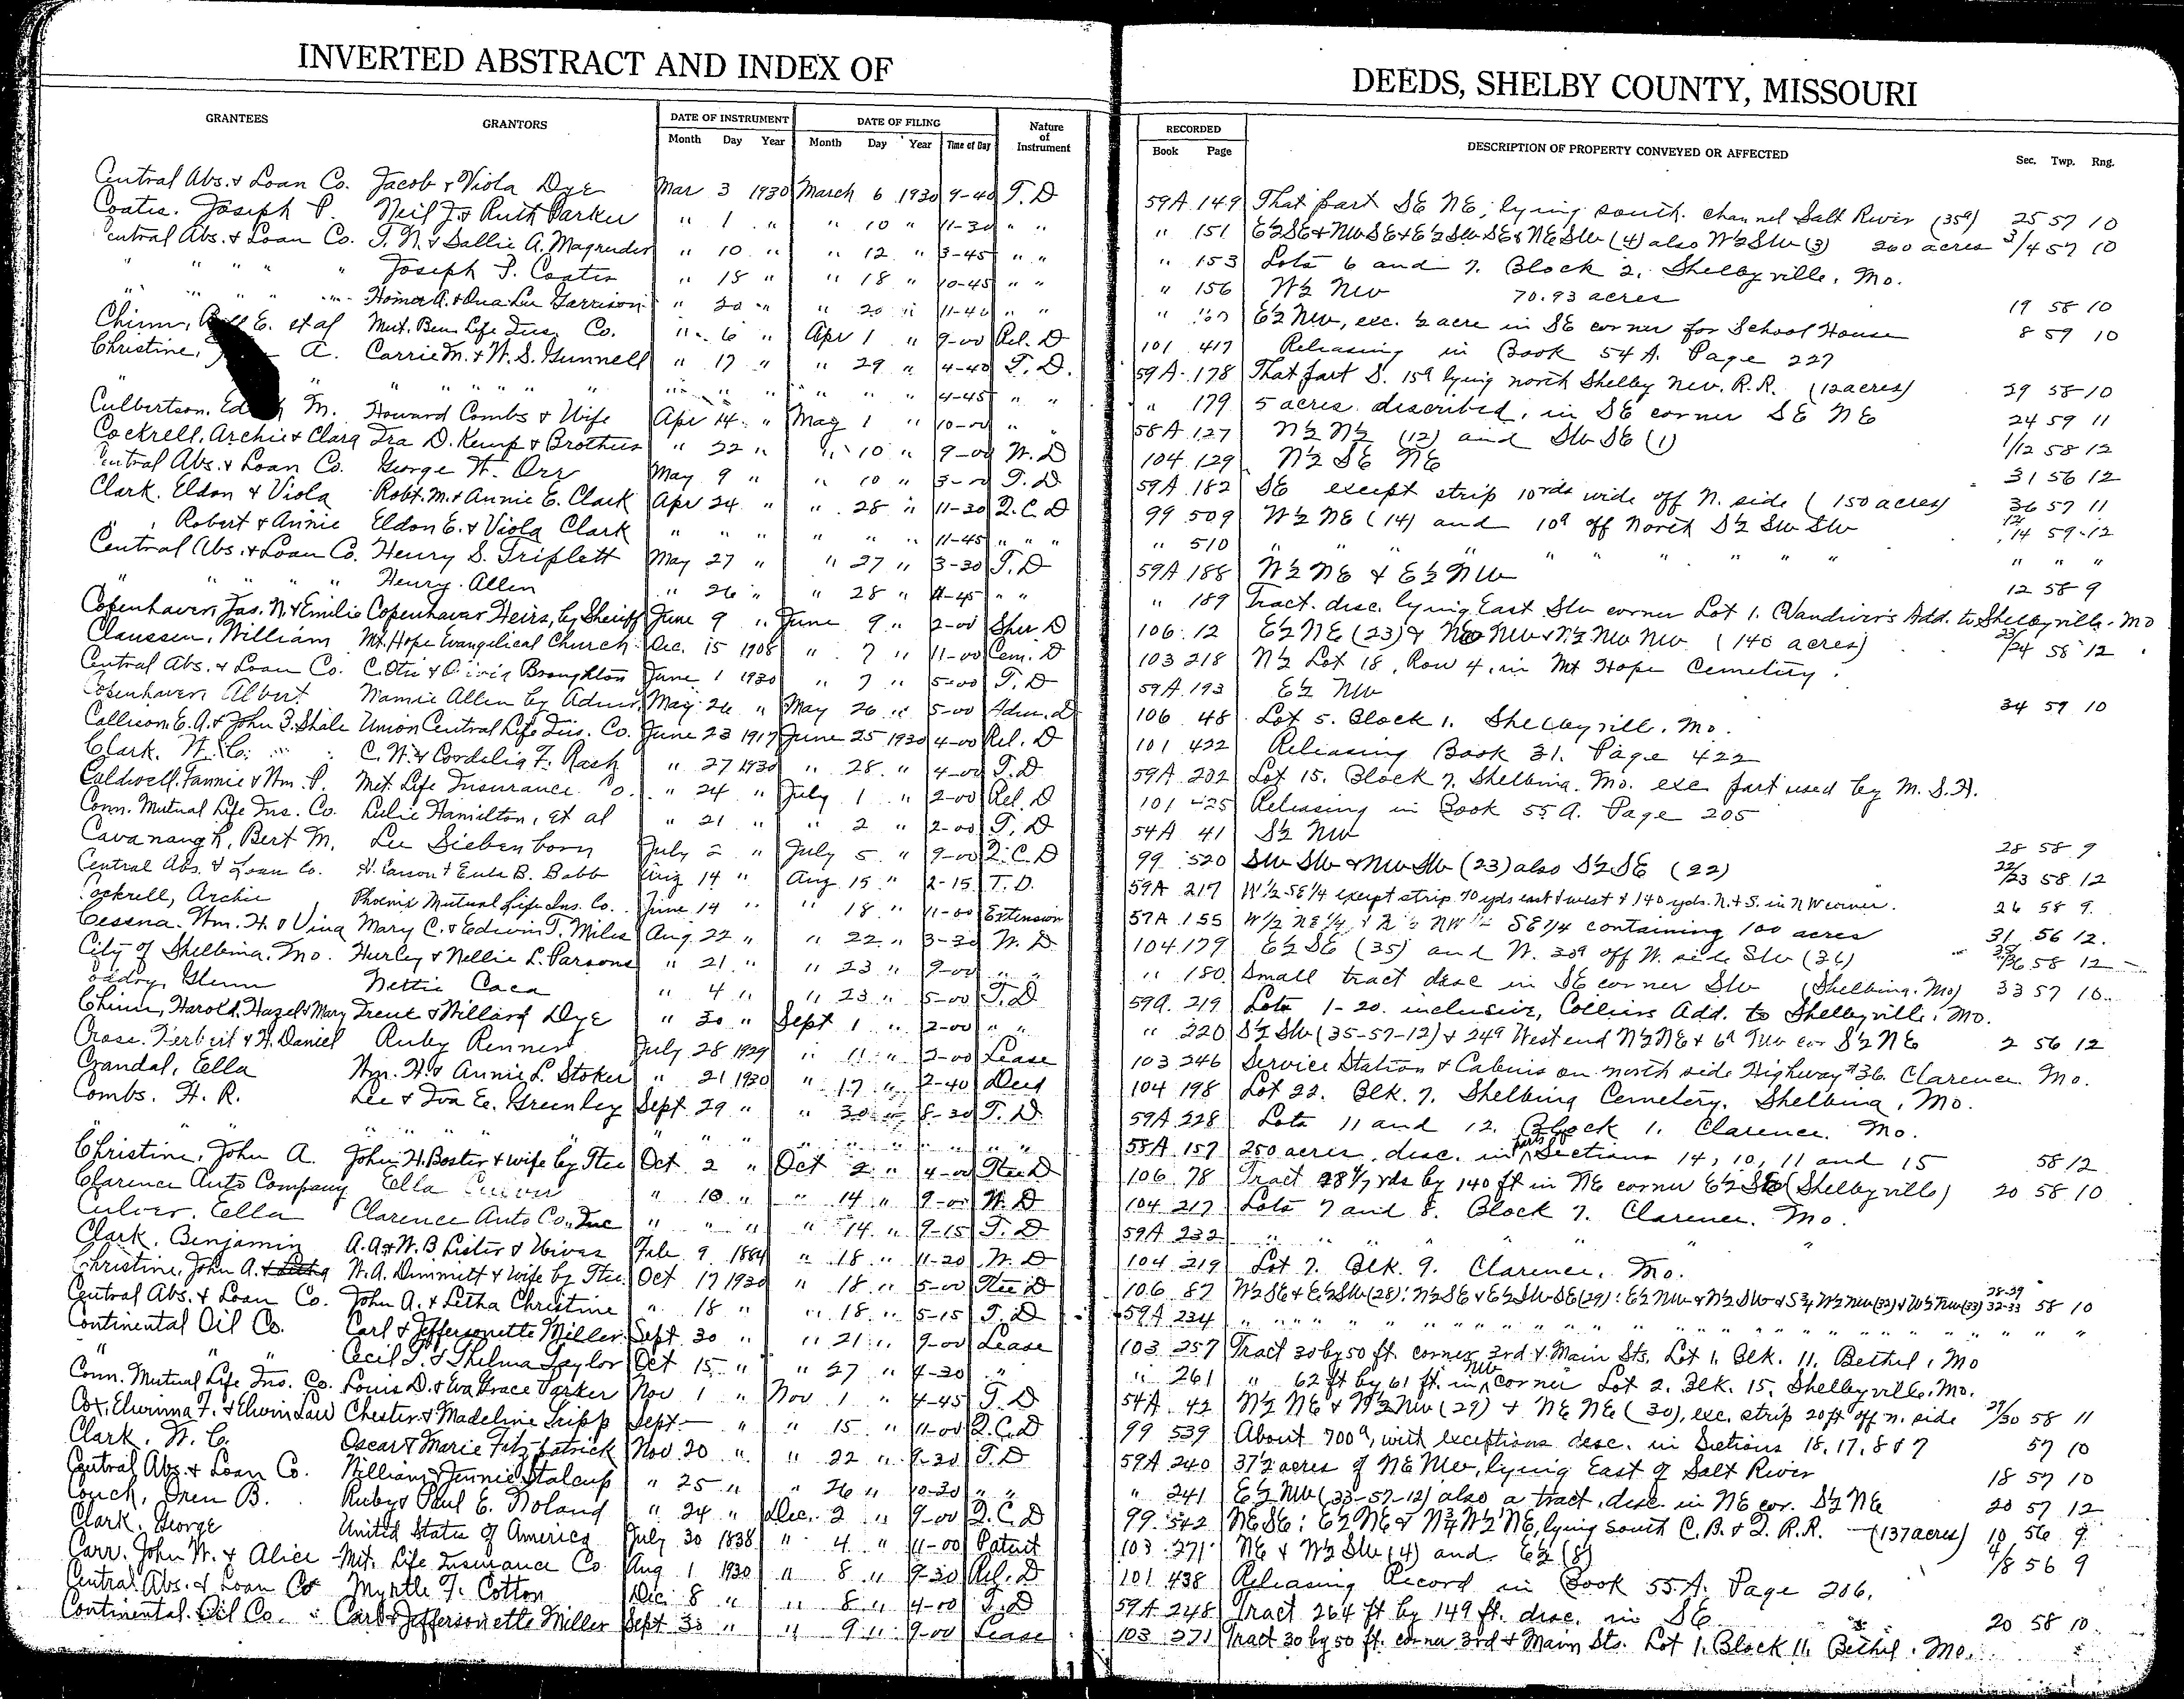 INVERTED ABSTRACT AND INDEX OF DEEDS, SHELBY COUNTY, MISSOURI
GRANTEES GRANTORS DATE OF INSTRUMENT Month Day Year DATE OF FILING Month Day Year Time of Day Nature of Instrument RECORDED Book Page DESCRIPTION OF PROPERTY CONVEYED OR AFFECTED Sec. Twp. Rng.
Central Abs. & Loan Co. Jacob & Viola Dye Mar 3 1930 March 6 1930 9-40 T.D 59A 149 That part SE NE, lying south channel Salt River (35a) 25 57 10
Coates. Joseph P. Neil J. & Ruth Parker " 1 " " 10 " 11-30 " " " 151 E½SE & NWSE & E½SWSE & NESW (4) also W½SW (3) 260 acres 3/4 57 10
Central Abs. & Loan Co. T. N. & Sallie A. Magruder " 10 " " 12 " 3-45 " " " 153 Lots 6 and 7. Block 2. Shelbyville, Mo.
" " " " Joseph P. Coates " 18 " " 18 " 10-45 " " " 156 W½ NW 70.93 acres 19 58 10
" " " " Homer A. & Ona Lee Garrison " 20 " " 20 " 11-40 " " " E½ NW, exc. ½ acre in SE corner for School House 8 59 10
Chinn, E. et al Mut. Ben. Life Ins. Co. " 6 " Apr 1 " 9-00 Rel. D 101 417 Releasing in Book 54A. Page 227
Christine, A. Carrie M. & W. S. Gunnell " 17 " " 29 " 4-40 T.D. 59A 178 That part S. 15a lying north Shelby N.W. R.R. (12 acres) 29 58 10
" " " " " " " " " " " " " 4-45 " " " 179 5 acres described, in SE corner SE NE 24 59 11
Culbertson, M. Howard Combs & Wife Apr 14 " May 1 " 10-00 " 58A 127 N½ N½ (12) and SW SE (1) 1/12 58 12
Cockrell, Archie & Clara Ira D. Kemp & Brothers " 22 " " 10 " 9-00 W.D 104 129 N½ SE NE 31 56 12
Central Abs. & Loan Co. George W. Orr May 9 " " 10 " 3-00 T.D 59A 182 SE except strip 10 rds wide off N. side (150 acres) 36 57 11
Clark. Eldon & Viola Robt. M. & Annie E. Clark Apr 24 " " 28 " 11-30 Q.C.D 99 509 W½ NE (14) and 10a off North S½ SW SW 12/14 59-12
" , Robert & Annie Eldon E. & Viola Clark " " " " " " 11-45 " " " " 510 " " " " " " " " " " " "
Central Abs. & Loan Co. Henry S. Triplett May 27 " " 27 " 3-30 T.D 59A 188 W½ NE & E½ NW 12 58 9
" " " " Henry Allen " 26 " " 28 " 11-45 " " " 189 Tract. desc. lying East SW corner Lot 1. Vandiver's Add. to Shelbyville. Mo
Copenhaver, Jas. N. & Emilie Copenhaver Heirs, by Sheriff June 9 " June 9 " 2-00 Sher. D 106 12 E½ NE (23) & NW NW & N½ NW NW (140 acres) 23/24 58 12
Claussen, William Mt. Hope Evangelical Church Dec. 15 1908 " 7 " 11-00 Cem. D 103 218 N½ Lot 18, Row 4, in Mt Hope Cemetery.
Central Abs. & Loan Co. C. Otis & Broughton June 1 1930 " 7 " 5-00 T.D 59A 193 E½ NW 34 59 10
Copenhaver, Albert. Mamie Allen by Admr. May 26 " May 26 " 5-00 Adm. D 106 48 Lot 5. Block 1. Shelbyville. Mo.
Collison, E. A. & John J. Shale Union Central Life Ins. Co. June 23 1917 June 25 1930 4-00 Rel. D 101 422 Releasing Book 31. Page 422
Clark. W. C. C. W. & Cordelia F. Rash " 27 1930 " 28 " 4-00 T.D 59A 202 Lot 15. Block 7. Shelbina. Mo. exc part used by M. S. H.
Caldwell, Fannie & Wm. P. Met. Life Insurance Co. " 24 " July 1 " 2-00 Rel. D 101 425 Releasing in Book 55A. Page 205
Conn. Mutual Life Ins. Co. Hamilton, et al " 21 " " 2 " 2-00 T.D 54A 41 S½ NW 28 58 9
Cavanaugh, Bert M. Lee Siebenborn July 2 " July 5 " 9-00 Q.C.D 99 520 SW SW & NW SW (23) also S½ SE (22) 22/23 58 12
Central Abs. & Loan Co. H. Carson & Eula B. Babb Aug 14 " Aug 15 " 2-15 T.D. 59A 217 W 1/2 SE 1/4 except strip 70 yds east & west & 140 yds. N. & S. in NW corner. 26 58 9
Cockrell, Archie Phoenix Mutual Life Ins. Co. June 14 " " 18 " 11-00 Extension 57A 155 W 1/2 NE 1/4 & N 1/2 NW 1/4 SE 1/4 containing 100 acres 31 56 12.
Cessna. Wm. H. & Vina Mary C. & Edwin T. Miles Aug 22 " " 22 " 3-30 W.D 104 179 E½ SE (35) and W. 30a off W. side SW (36) 35/36 58 12
City of Shelbina. Mo. Hurley & Nellie L. Parsons " 21 " " 23 " 9-00 " " " 180 Small tract desc in SE corner SW (Shelbina. Mo) 33 57 10
Coldry, Glenn Nettie Caca " 4 " " 23 " 5-00 T.D 59A 219 Lots 1-20. inclusive, Collins Add. to Shelbyville. Mo.
Chinn, Harold, Hazel & Mary Irene & Willard Dye " 30 " Sept 1 " 2-00 " " " 220 S½ SW (35-57-12) & 24a West end N½ NE & 6a NW cor S½ NE 2 56 12
Crose. Herbert & H. Daniel Ruby Renner July 28 1929 " 11 " 2-00 Lease 103 246 Service Station & Cabins on north side Highway #36. Clarence. Mo.
Crandal, Ella Wm. H. & Annie L. Stoker " 21 1930 " 17 " 2-40 Deed 104 198 Lot 22. Blk. 7. Shelbina Cemetery. Shelbina, Mo.
Combs. H. R. Lee & Iva E. Greenley Sept 29 " " 30 " 8-30 T.D 59A 228 Lots 11 and 12. Block 1. Clarence. Mo.
" " " " " " " " " " " " " " " 58A 157 250 acres, desc. in parts of Sections 14, 10, 11 and 15 58 12
Christine, John A. John H. Bostor & wife by Stee Oct 2 " Oct 2 " 4-00 Stee D 106 78 Tract 28 4/7 yds by 140 ft in NE corner E½ SE (Shelbyville) 20 58 10
Clarence Auto Company Ella Culver " 10 " " 14 " 9-00 W.D 104 217 Lots 7 and 8. Block 7. Clarence. Mo.
Culver. Ella Clarence Auto Co., Inc " " " " 14 " 9-15 T.D 59A 232 " " " " " "
Clark. Benjamin A. A. & W. B Lister & Wives Feb 9 1884 " 18 " 11-20 W.D 104 219 Lot 7. Blk. 9. Clarence. Mo.
Christine, John A. & Letha W. A. Dimmitt & Wife by Stee Oct 17 1930 " 18 " 5-00 Stee D 106 87 W½ SE & E½ SW (28): N½ SE & E½ SW SE (29): E½ NW & N½ SW & S¾ W½ NW (32) & W½ NW (33) 28-29 32-33 58 10
Central Abs. & Loan Co. John A. & Letha Christine " 18 " " 18 " 5-15 T.D 59A 234 " " " " " " " " " " " "
Continental Oil Co. Carl & Jeffersonette Miller Sept 30 " " 21 " 9-00 Lease 103 257 Tract 30 by 50 ft. corner 3rd & Main Sts. Lot 1. Blk. 11. Bethel, Mo
" " " Cecil T. & Thelma Taylor Oct 15 " " 27 " 4-30 " " 261 " 62 ft by 61 ft. in NW corner Lot 2. Blk. 15. Shelbyville. Mo.
Conn. Mutual Life Ins. Co. Louis D. & Eva Grace Parker Nov 1 " Nov 1 " 4-45 T.D 54A 42 N½ NE & N½ NW (29) & NE NE (30), exc. strip 20 ft off N. side 29/30 58 11
Cox, Elwinna F. & Elwin Law Chester & Madeline Tripp Sept — " " 15 " 11-00 Q.C.D 99 539 About 700a, with exceptions desc. in Sections 18, 17, 8 & 7 57 10
Clark. W. C. Oscar & Marie Fitzpatrick Nov 20 " " 22 " 9-30 T.D 59A 240 37½ acres of NE NW, lying East of Salt River 18 57 10
Central Abs. & Loan Co. William & Jennie Stalcup " 25 " " 26 " 10-30 " " " 241 E½ NW (33-57-12) also a tract, desc. in NE cor. S½ NE 20 57 12
Couch, Oren B. Ruby & Paul E. Noland " 24 " Dec. 2 " 9-00 Q.C.D 99 542 NE SE: E½ NE & N¾ W½ NE, lying South C. B. & Q. R.R. (137 acres) 10 56 9
Clark, George United States of America July 30 1838 " 4 " 11-00 Patent 103 271 NE & W½ SW (4) and E½ (8) 4/8 56 9
Carr. John W. & Alice Met. Life Insurance Co. Aug 1 1930 " 8 " 9-30 Rel. D 101 438 Releasing Record in Book 55A. Page 206.
Central Abs. & Loan Co Myrtle F. Cotton Dec. 8 " " 8 " 4-00 T.D 59A 248 Tract 264 ft by 149 ft. desc. in SE 20 58 10
Continental Oil Co. Carl & Jeffersonette Miller Sept 30 " " 9 " 9-00 Lease 103 271 Tract 30 by 50 ft. corner 3rd & Main Sts. Lot 1. Block 11. Bethel. Mo.